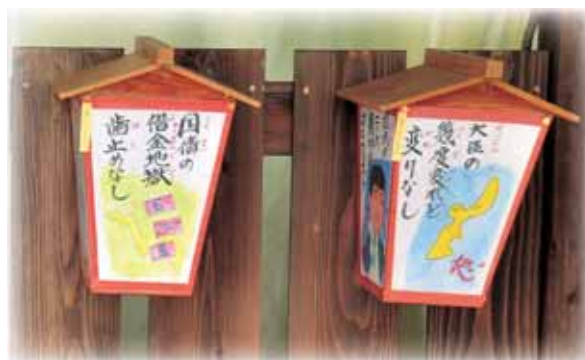 国債の
借金地獄
歯止めなし
大臣の
幾度変れど
変りなし